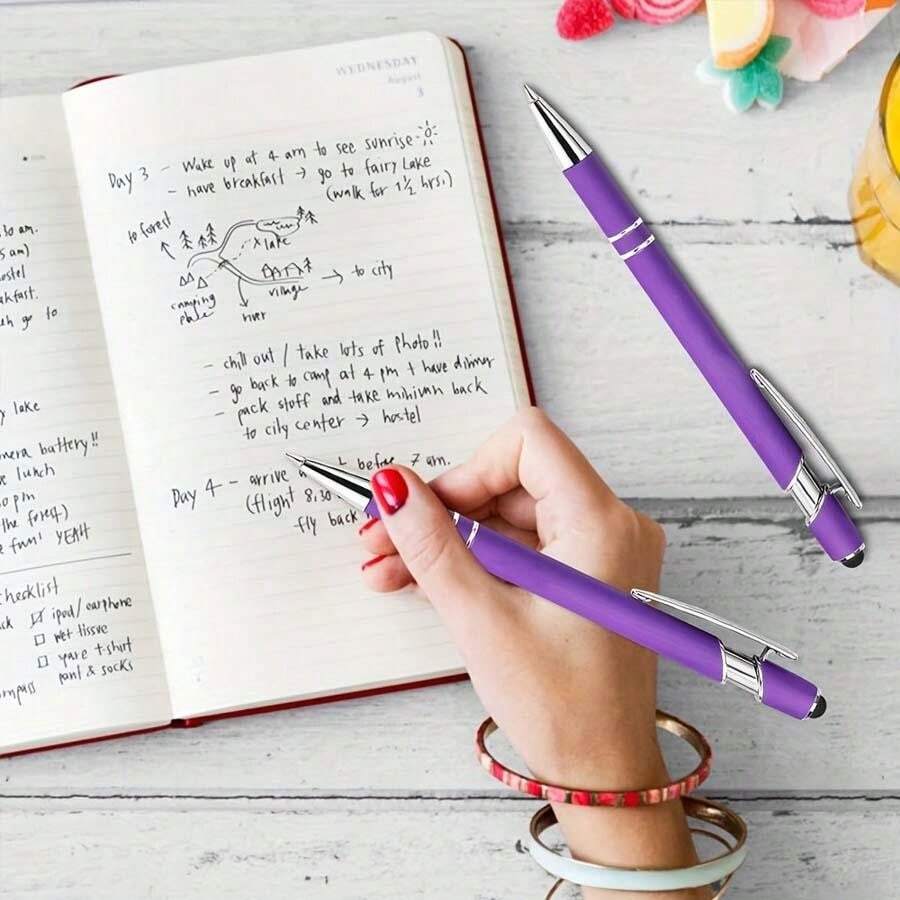 to am.
5 am)
ostel
akfast.
go to
y lake
mera battery!!
lunch
pm
the forest)
fun! YEAH
checklist
ipod/earphone
wet tissue
spare t-shirt
pant & socks
mpass
WEDNESDAY
August
3
Day 3 - Wake up at 4 am to see sunrise
- have breakfast → go to fairy Lake
(walk for 1½ hrs!)
to forest
x lake
camping
place
village
→ to city
river
- chill out / take lots of photo!!
- go back to camp at 4 pm + have dinner
- pack stuff and take minivan back
to city center → hostel
Day 4 - arrive before 7 am.
(flight 8.30
fly back